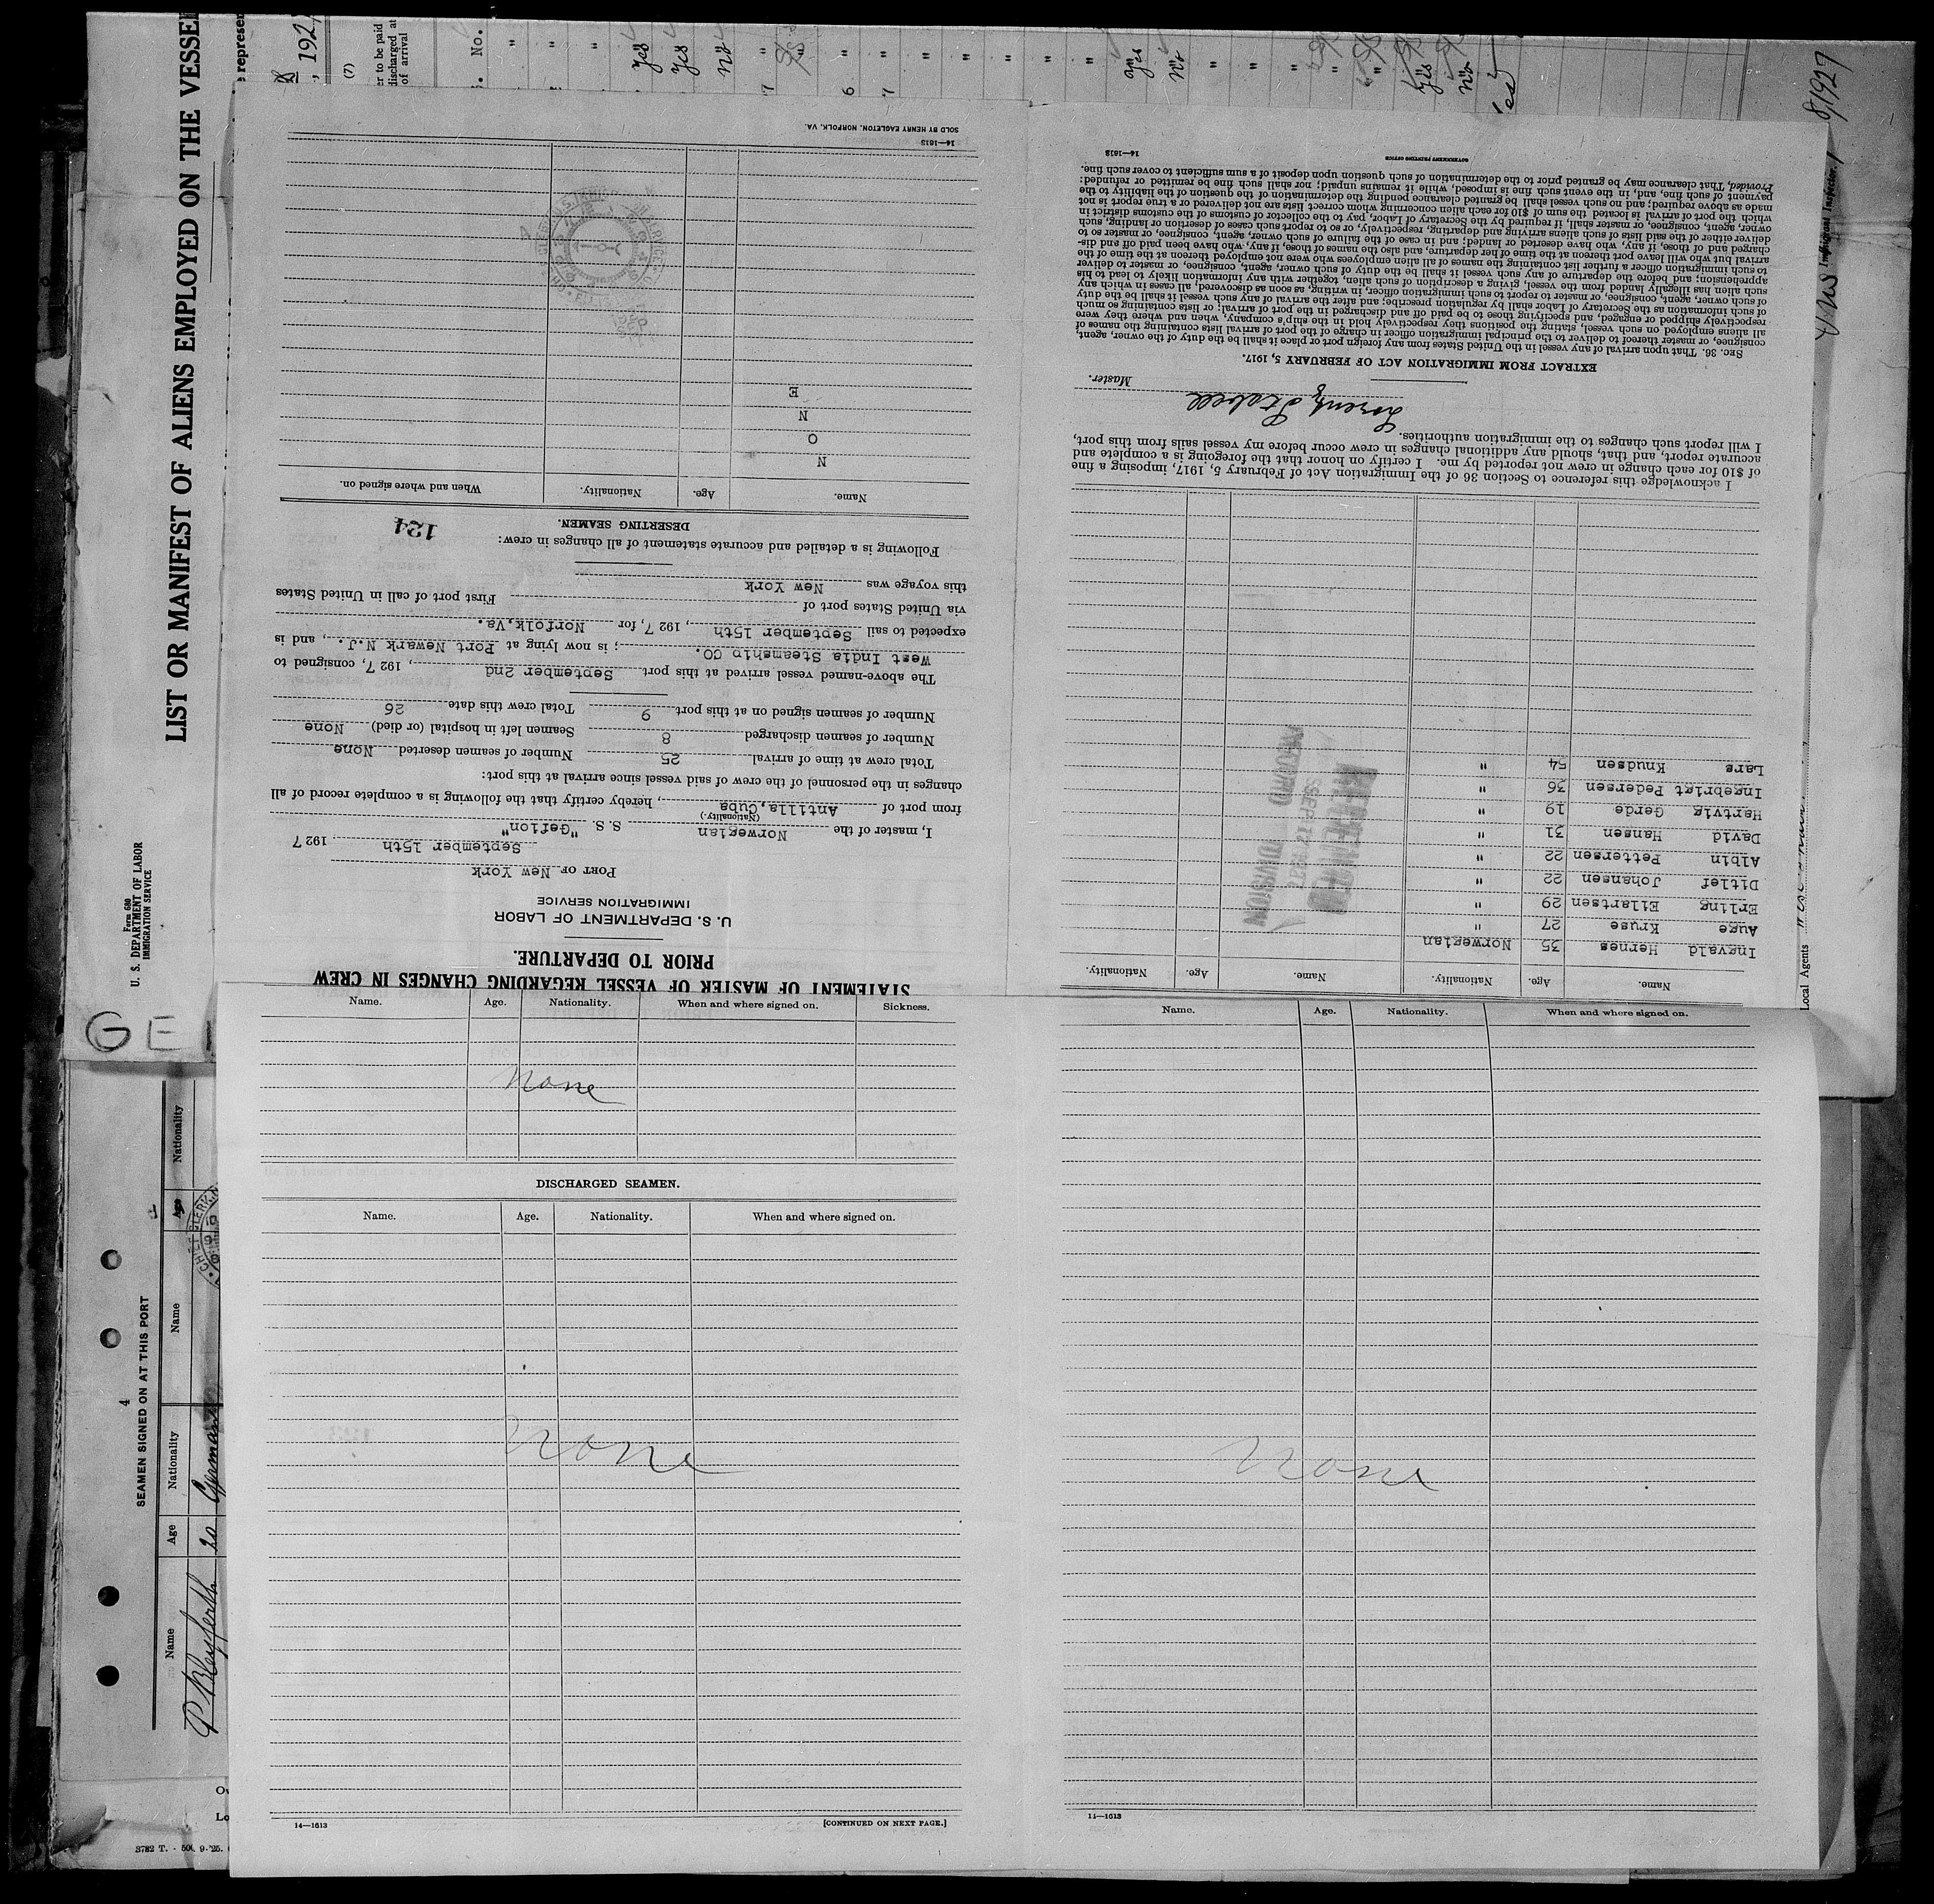 LIST OR MANIFEST OF ALIENS EMPLOYED ON THE VESSEL
Form 680
U. S. DEPARTMENT OF LABOR
IMMIGRATION SERVICE
represen
, 192
(7)
er to be paid
discharged at
of arrival
No.
yes
yes
no
yes
no
yes
no
8/1927
Immigrant Inspector.
Local Agents
STATEMENT OF MASTER OF VESSEL REGARDING CHANGES IN CREW
PRIOR TO DEPARTURE.
U. S. DEPARTMENT OF LABOR
IMMIGRATION SERVICE
PORT OF New York
September 15th 1927
I, master of the Norwegian S.S. "Gefion"
(Nationality.)
from port of Antilla,Cuba, hereby certify that the following is a complete record of all
changes in the personnel of the crew of said vessel since arrival at this port:
Total crew at time of arrival 25 Number of seamen deserted None
Number of seamen discharged 8 Seamen left in hospital (or died) None
Number of seamen signed on at this port 9 Total crew this date 26
The above-named vessel arrived at this port September 2nd, 1927, consigned to
West India Steamship CO.; is now lying at Port Newark N.J., and is
expected to sail September 15th, 1927, for Norfolk,Va.
via United States port of First port of call in United States
this voyage was New York
Following is a detailed and accurate statement of all changes in crew:
DESERTING SEAMEN.
124
Name. Age. Nationality. When and where signed on.
N
O
N
E
14—1613
SOLD BY HENRY EAGLETON, NORFOLK, VA.
Name. Age. Nationality. Name. Age. Nationality.
Ingvald Hernes 35 Norwegian
Auge Kruse 27 "
Erling Eilartsen 29 "
Ditlef Johansen 22 "
Albin Pettersen 22 "
David Hansen 31 "
Hartvig Gerde 19 "
Ingebrigt Pedersen 36 "
Lars Knudsen 54 "
SEP 17 1927
RECORD DIVISION
I acknowledge this reference to Section 36 of the Immigration Act of February 5, 1917, imposing a fine
of $10 for each change in crew not reported by me. I certify on honor that the foregoing is a complete and
accurate report, and that, should any additional changes in crew occur before my vessel sails from this port,
I will report such changes to the immigration authorities.
Master.
EXTRACT FROM IMMIGRATION ACT OF FEBRUARY 5, 1917.
SEC. 36. That upon arrival of any vessel in the United States from any foreign port or place it shall be the duty of the owner, agent,
consignee, or master thereof to deliver to the principal immigration officer in charge of the port of arrival lists containing the names of
all aliens employed on such vessel, stating the positions they respectively hold in the ship's company, when and where they were
respectively shipped or engaged, and specifying those to be paid off and discharged in the port of arrival; or lists containing so much
of such information as the Secretary of Labor shall by regulation prescribe; and after the arrival of any such vessel it shall be the duty
of such owner, agent, consignee, or master to report to such immigration officer, in writing, as soon as discovered, all cases in which any
such alien has illegally landed from the vessel, giving a description of such alien, together with any information likely to lead to his
apprehension; and before the departure of any such vessel it shall be the duty of such owner, agent, consignee, or master to deliver
to such immigration officer a further list containing the names of all alien employees who were not employed thereon at the time of the
arrival but who will leave port thereon at the time of her departure, and also the names of those, if any, who have been paid off and dis-
charged and of those, if any, who have deserted or landed; and in case of the failure of such owner, agent, consignee, or master so to
deliver either of the said lists of such aliens arriving and departing, respectively, or so to report such cases of desertion or landing, such
owner, agent, consignee, or master shall, if required by the Secretary of Labor, pay to the collector of customs of the customs district in
which the port of arrival is located the sum of $10 for each alien concerning whom correct lists are not delivered or a true report is not
made as above required; and no such vessel shall be granted clearance pending the determination of the question of the liability to the
payment of such fine, and, in the event such fine is imposed, while it remains unpaid; nor shall such fine be remitted or refunded:
Provided, That clearance may be granted prior to the determination of such question upon deposit of a sum sufficient to cover such fine.
14—1613
GOVERNMENT PRINTING OFFICE
Name. Age. Nationality. When and where signed on. Sickness.
None
DISCHARGED SEAMEN.
Name. Age. Nationality. When and where signed on.
None
14—1613
[CONTINUED ON NEXT PAGE.]
Name. Age. Nationality. When and where signed on.
None
14—1613
4
SEAMEN SIGNED ON AT THIS PORT
Name Age Nationality Name Age Nationality
20 German
CHIEF CLERK